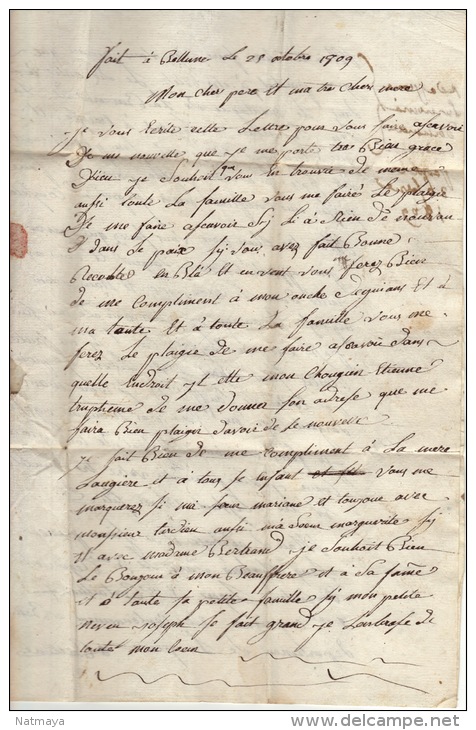 fait à Bellune le 25 octobre 1809
Mon cher pere et ma tres chere mere
je vous Ecrit cette Lettre pour vous fair asavoir
De mes nouvelle que je me porte tres Bien grace
a Dieu je souhait que vous En trouve de meme
aussi toute La famille vous me faires Le plaisir
De me faire asavoir sy Li à Rien de nouvau
dans Se païx sy vous avez fait Bonne
Recolte En Blé Et en vent vous ferez Bien
de me Compliment à mon oncle Et à
ma tante Et à toute La famille vous me
ferez Le plaisie de me faire asavoir dans
quelle Endroit yl ette mon Etienne
trupheme De me donner son adrese que me
faira Bien plaizir davoir de Se nouvelle
je fait Bien de me Compliment à La mere
Laugiere et à tous se Enfant vous me
marquerez si ma Soeur mariane et toujour avec
monsieur tardieu aussi ma Soeur marguerite sy
Et avec madame Bertrand je Souhait Bien
Le Bonjour à mon Beauffrere et à Sa fame
et à toute sa petite famille sy mon petite
neveu Joseph Se fait grand je Lanbrase de
toute mon Coeur
Natmaya
delcampe.net